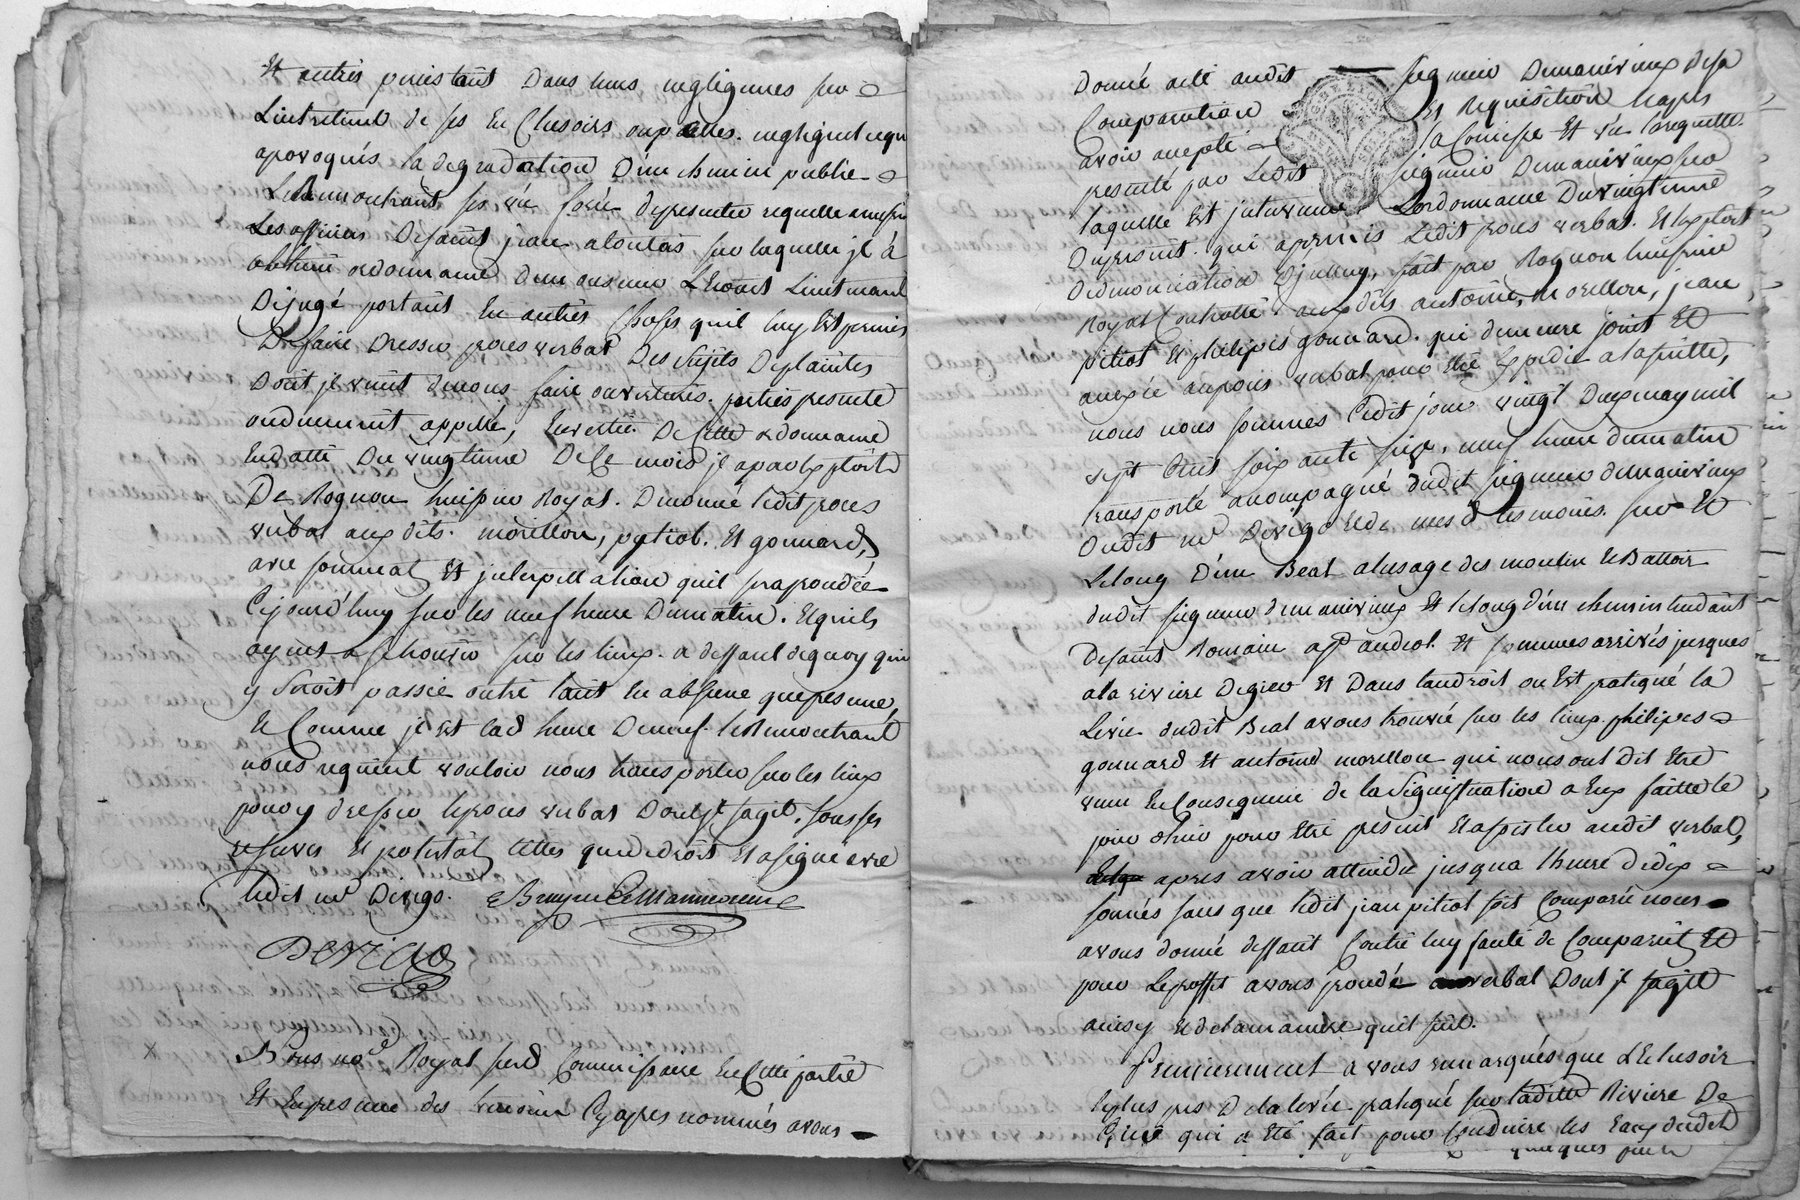 Et autres persistant dans leurs negligences sur
L'entretient de ses Ecclusoirs ou pattes. negligence qui
a provoqués la degradation d'un chemin publie
Le Remontrant s'est vû forcé de presenter requette a messrs
Les officiers de saint jean a toulas sur laquelle il à
obtenu ordonnance de monsieur L'honet Lieutenant
De jugé portant En autres Choses qu'il luy Est permis
De faire dresser procès verbal Des sujets de plaintes
Dont il vient de nous faire ouvertures. parties presente
ou duement appellé, En vertu De Cette ordonnance
En datte Du vingtieme De Ce mois il a par Exploit
De Rognon huissier Royal. Denoncé ledit procès
verbal aux dits. morillon, pitiot. Et gonnard,
avec sommation Et jnterpellation qu'il sera procédée
Cejourd'huy sur les neuf heure Du matin. Et qu'ils
ayent a se trouver sur les lieux. a deffaut de quoy qu'il
y seroit passée outre tant En absence que presence,
Et Comme il Est lad heure De neuf. le Remontrant
nous requiert vouloir nous transporter sur les lieux
pour y dresser le procès verbal Dont jl s'agit, sous ses
reserves Et protestations telles que de droit Et a signé avec
ledit me Dervigo.
Dervigo
Nous nore Royal susd Commissaire En Cette partie
Et En presence des temoins Cy apres nommés avons
Donné acte audit seigneur De manivieux De sa
Comparution Et Requisition Et apres
avoir accepté la Commise Et vû la requette
presenté par Ledit seigneur De manivieux sur
laquelle Est jntervenue L'ordonnance Du vingtieme
Du present. qui a permis Ledit procès verbal. Et l'exploit
De denonciation D'jcelluy, fait par Rognon huissier
Royal Controllé. aux dits antoine, morillon, jean
pitiot Et philipes gonnard. qui demeure joint Et
annexée au procès verbal pour être Expedie a la suitte,
nous nous sommes ledit jour vingt Deux may mil
sept Cent soixante six, neuf heure du matin
transporté accompagné dudit seigneur de manivieux
Dudit me Dervigo Et de mesd temoins. sur Et
Le long D'un Beal a l'usage des moulin Et Battoir
dudit seigneur de manivieux Et le long d'un chemin tendant
De saint Romain a st andeol. Et sommes arrivés jusques
a la riviere De gier Et Dans l'androit ou Est pratiqué la
Levée dudit Beal avons trouvée sur les lieux philipes
gonnard Et antoine morillon qui nous ont Dit Etre
venu En Consequence de la signiffication a Eux faitte le
jour d'hier pour Etre present Et assister audit verbal,
apres avoir attendu jusqua l'heure de dix
sonnés sans que ledit jean pitiot soit Comparu nous
avons donné deffaut Contre luy faute de Comparoit Et
pour Le proffit avons procedé au verbal Dont jl s'agit
ainsy Et de la maniere qu'il suit.
Premierement avons remarqués que L'Eclusoir
le plus pres De la levée pratiqué sur laditte Riviere De
Gier qui a Eté fait pour Conduire les Eaux dudit